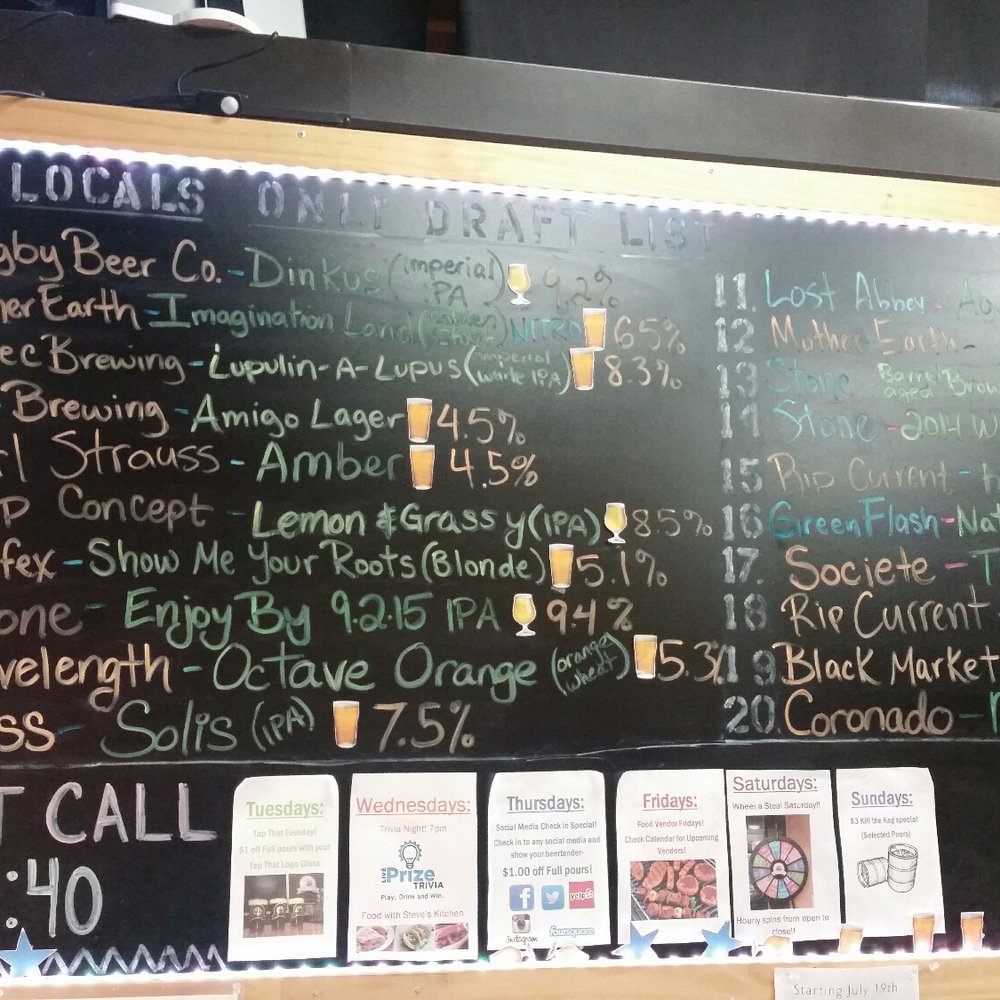 LOCALS ONLY DRAFT LIST
gby Beer Co. - Dinkus (imperial IPA) 9.2%
her Earth - Imagination Land (Golden Stout) NITRO 6.5%
ec Brewing - Lupulin-A-Lupus (imperial white IPA) 8.3%
Brewing - Amigo Lager 4.5%
rl Strauss - Amber 4.5%
p Concept - Lemon & Grassy (IPA) 8.5%
fex - Show Me Your Roots (Blonde) 5.1%
one - Enjoy By 9.2.15 IPA 9.4%
velength - Octave Orange (orange wheat) 5.3%
ss - Solis (IPA) 7.5%
11. Lost Abbey -
12 Mother Earth -
13 Stone Barrel aged Brow
14 Stone - 2014 W
15 Rip Current -
16 Green Flash - Nat
17. Societe - T
18 Rip Current
19 Black Market
20. Coronado -
T CALL
:40
Tuesdays:
Tap That Tuesday!
$1 off Full pours with your
Tap That Logo Glass
Wednesdays:
Trivia Night! 7pm
LIVE
Prize
TRIVIA
Play, Drink and Win.
Food with Steve's Kitchen
Thursdays:
Social Media Check in Special!
Check in to any social media and
show your beertender-
$1.00 off Full pours!
yelp
Instagram
foursquare
Fridays:
Food Vendor Fridays!
Check Calendar for Upcoming
Vendors!
Saturdays:
Wheel a Steal Saturday!!
Hourly spins from open to
close!!
Sundays:
$3 Kill the Keg special
(Selected Pours)
Starting July 19th